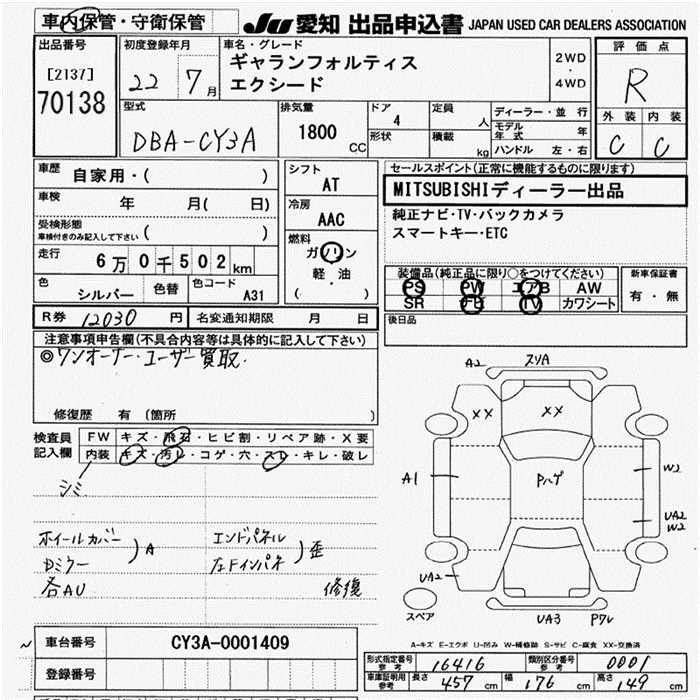 車内保管・守衛保管
JU 愛知 出品申込書 JAPAN USED CAR DEALERS ASSOCIATION
出品番号
[2137]
70138
初度登録年月
22 7月
車名・グレード
ギャランフォルティス
エクシード
2WD
・
4WD
評価点
R
外装 内装
C C
型式
DBA-CY3A
排気量
1800 CC
ドア
4
形状
定員
人
積載
kg
ディーラー・並行
モデル年式 年
ハンドル 左・右
車歴
自家用・( )
車検 年 月( 日)
受検形態
車検付きのみ記入して下さい ( )
走行
6万0千502km
色
シルバー
色替
色コード
A31
シフト
AT
冷房
AAC
燃料
ガソリン
軽・油
( )
セールスポイント(正常に機能するものに限ります)
MITSUBISHIディーラー出品
純正ナビ・TV・バックカメラ
スマートキー・ETC
装備品(純正品に限り○をつけてください)
PS PW エアB AW
SR ナビ TV カワシート
新車保証書
有・無
後日品
R券 12030 円 名変通知期限 月 日
注意事項申告欄(不具合内容等は具体的に記入して下さい)
◎ワンオーナー・ユーザー買取.
修復歴 有 (箇所 )
検査員
記入欄
FW キズ・飛石・ヒビ割・リペア跡・X要
内装 キズ・汚レ・コゲ・穴・スレ・キレ・破レ
シミ
ホイールカバー
Dミラー
各AU
A
エンドパネル
左Fインパネ
歪
修復
A2 スリA
XX XX
A1 Pハゲ W2
UA2
W2
UA2
スペア
UA3 Pワレ
A-キズ E-エクボ U-凹み W-補修跡 S-サビ C-腐食 XX-交換済
車台番号 CY3A-0001409
登録番号
形式指定番号
参考
16416
類別区分番号
参考
0001
車庫証明用
参考
長さ 457 cm 幅 176 cm 高さ 149 cm